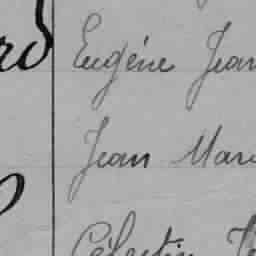 Eugéne Jean
Jean Mar
Célestin